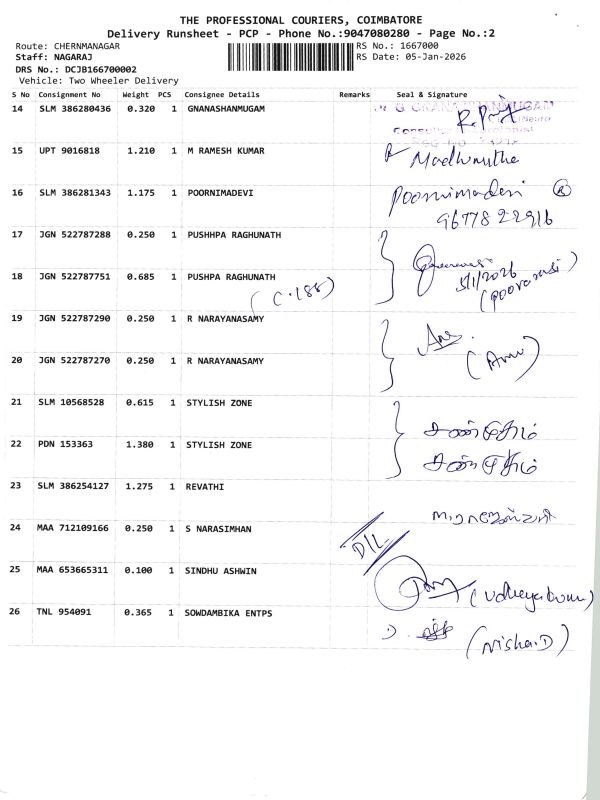 THE PROFESSIONAL COURIERS, COIMBATORE
Delivery Runsheet - PCP - Phone No.:9047080280 - Page No.:2
Route: CHERNMANAGAR RS No.: 1667000
Staff: NAGARAJ RS Date: 05-Jan-2026
DRS No.: DCJB166700002
Vehicle: Two Wheeler Delivery
S No Consignment No Weight PCS Consignee Details Remarks Seal & Signature
14 SLM 386280436 0.320 1 GNANASHANMUGAM
15 UPT 9016818 1.210 1 M RAMESH KUMAR
16 SLM 386281343 1.175 1 POORNIMADEVI Poornimadevi
9677822916
17 JGN 522787288 0.250 1 PUSHHPA RAGHUNATH
18 JGN 522787751 0.685 1 PUSHPA RAGHUNATH 5/1/2026
(C.188)
19 JGN 522787290 0.250 1 R NARAYANASAMY
20 JGN 522787270 0.250 1 R NARAYANASAMY
21 SLM 10568528 0.615 1 STYLISH ZONE
22 PDN 153363 1.380 1 STYLISH ZONE
23 SLM 386254127 1.275 1 REVATHI
24 MAA 712109166 0.250 1 S NARASIMHAN D/L
25 MAA 653665311 0.100 1 SINDHU ASHWIN
26 TNL 954091 0.365 1 SOWDAMBIKA ENTPS (Nisha.D)